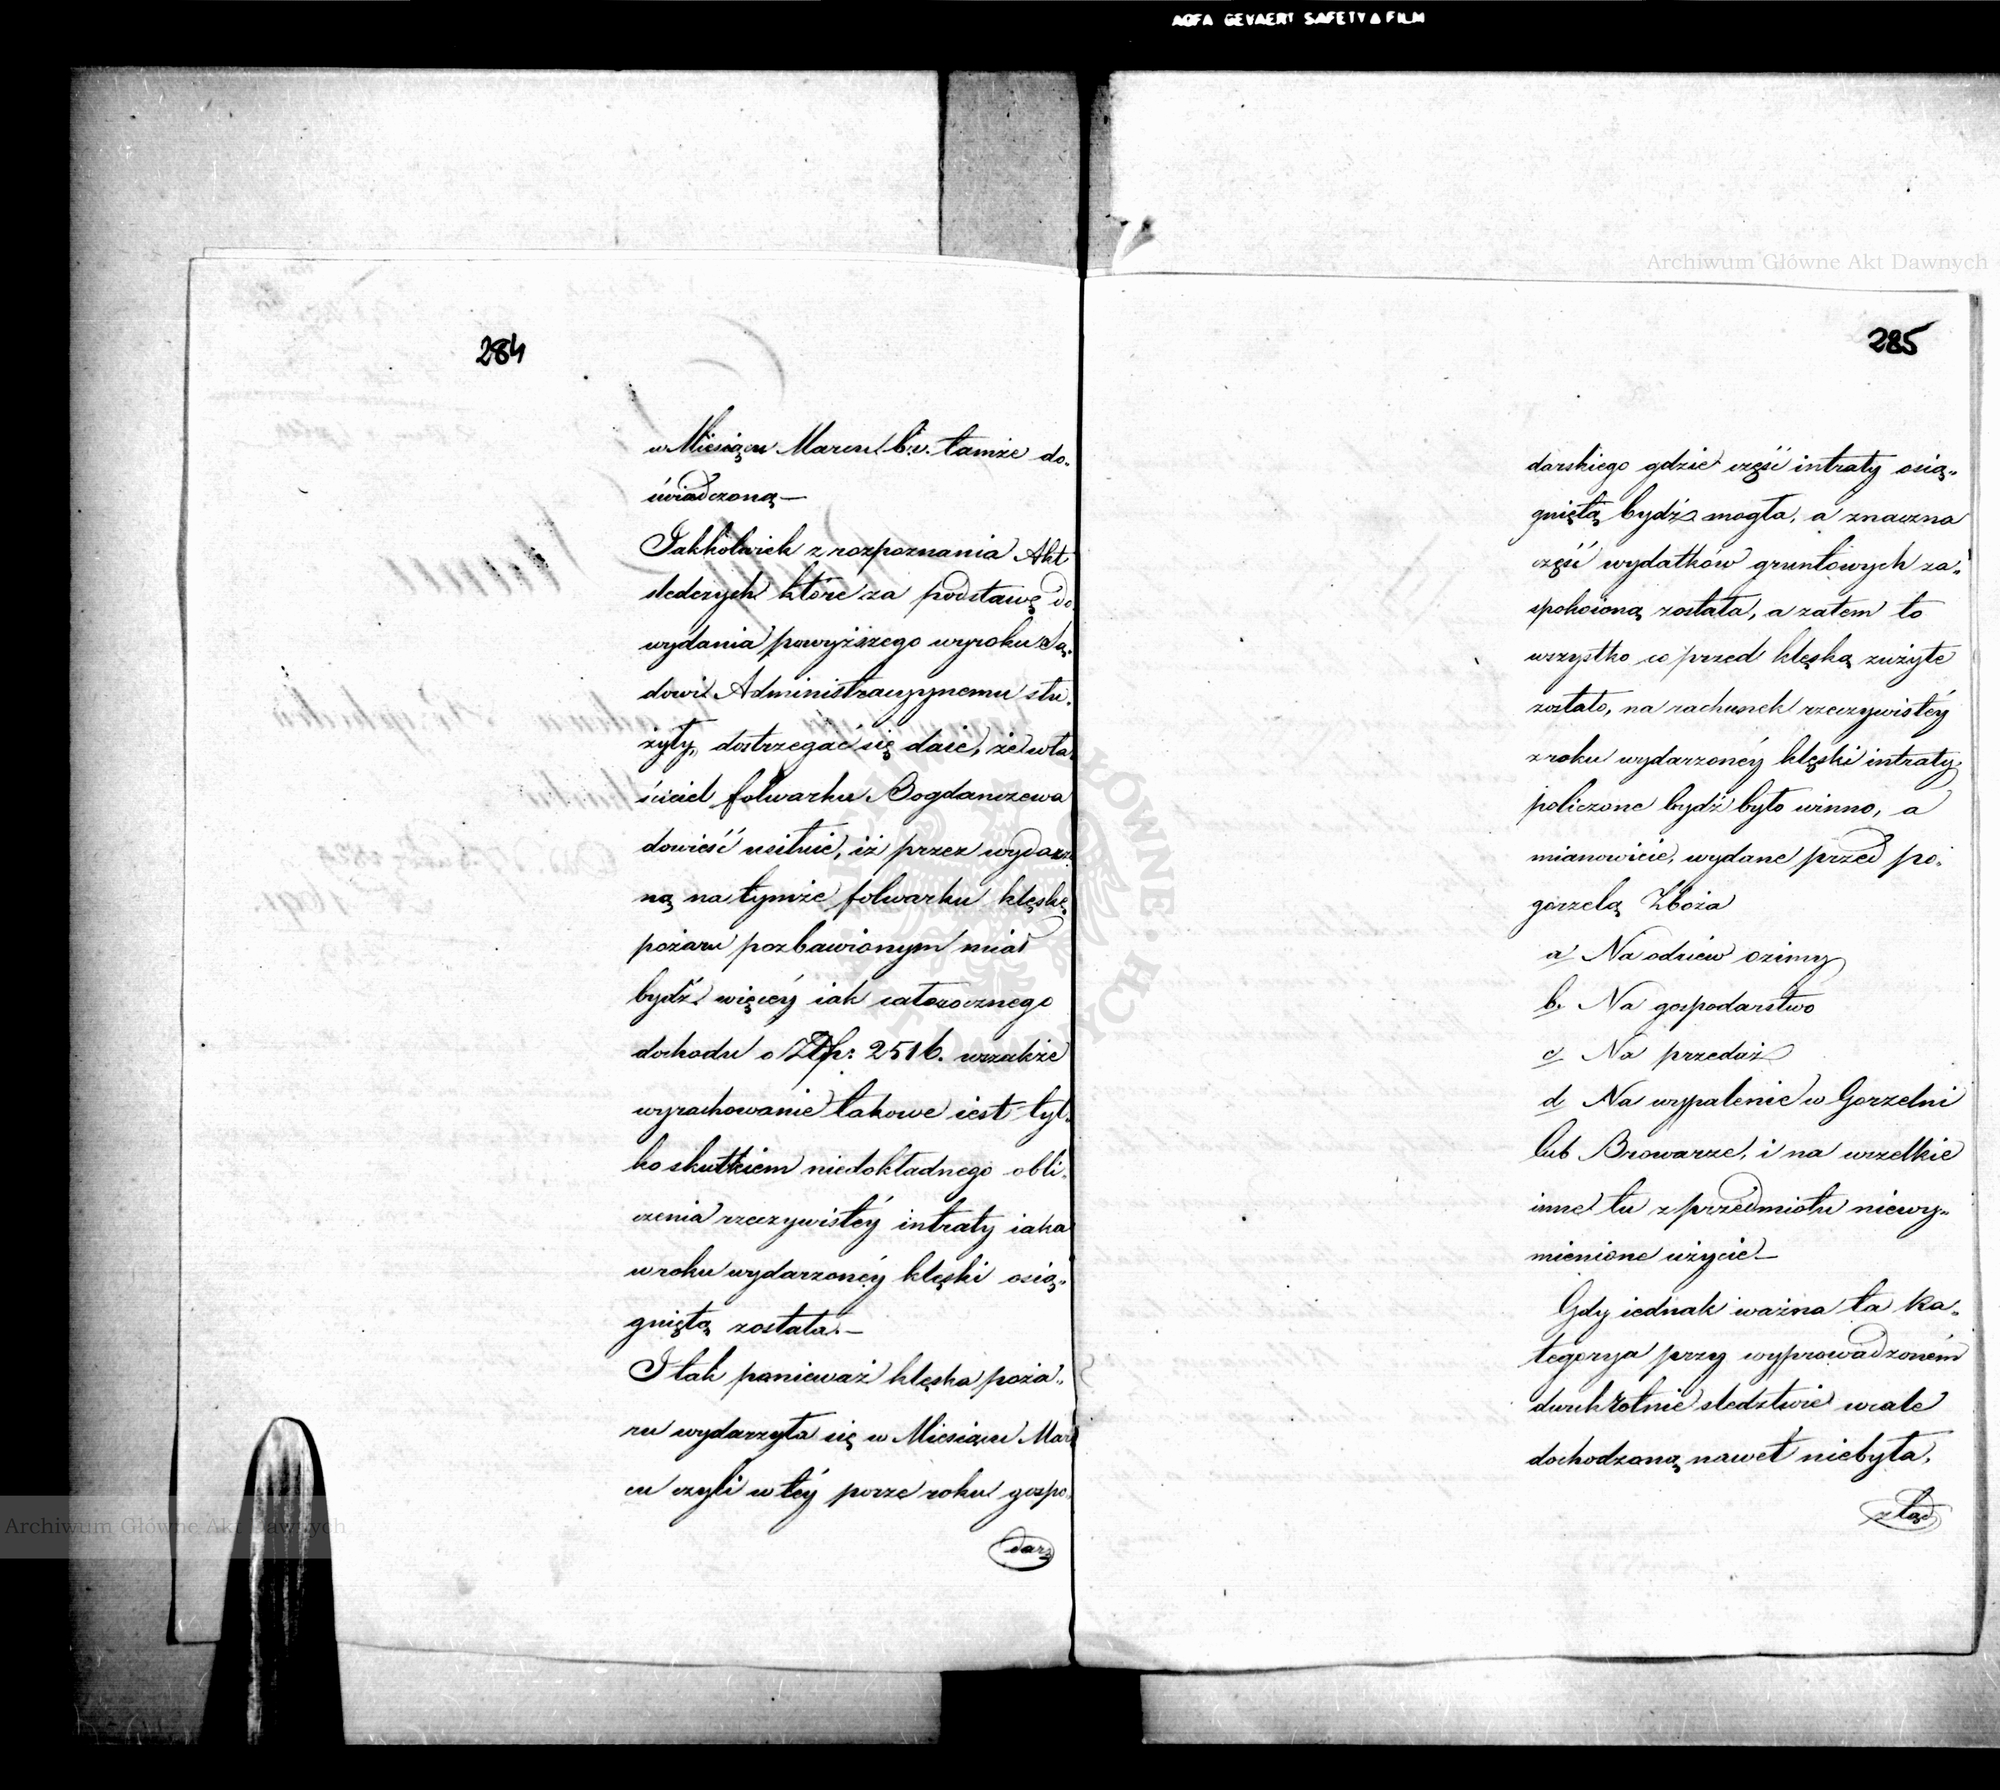 AGFA GEVAERT SAFETY FILM
284
w Miesiącu Marcu b.r. tamże do„
świadczoną —
Jakkolwiek z rozpoznania Akt
sledczych które za podstawę do
wydania powyższego wyroku Są„
dowi Administracyynemu słu„
żyły, dostrzegać się daie, że wła„
ściciel folwarku Bogdanczewa
dowieść usilnie, iż przez wydarzo
ną na tymże folwarku klęskę
pożaru pozbawionym miał
bydź więcéy iak całorocznego
dochodu o Złp: 2516. wszakże
wyrachowanie takowe iest tyl„
ko skutkiem niedokładnego obli„
czenia rzeczywistéy intraty iaka
w roku wydarzonéy klęski osią„
gniętą została. —
I tak ponieważ klęska poża„
ru wydarzyła się w Miesiącu Mar
cu czyli w téy porze roku gospo„
dars
285
darskiego gdzie część intraty osią„
gniętą bydź mogła, a znaczna
część wydatków gruntowych za„
spokoioną została, a zatem to
wszystko co przed klęską zużyte
zostało, na rachunek rzeczywistéy
z roku wydarzonéy klęski intraty
policzone bydź było winno, a
mianowicie, wydane przed po„
gorzelą Zboża
a/ Na odsiew ozimy
b. Na gospodarstwo
c/ Na przedaż
d/ Na wypalenie w Gorzelni
lub Browarze, i na wszelkie
inne tu z przedmiotu niewy„
mienione użycie —
Gdy iednak ważna ta ka„
tegorya przy wyprowadzoném
dwukrotnie sledztwie wcale
dochodzoną nawet niebyła,
ztąd
Archiwum Główne Akt Dawnych
Archiwum Główne Akt Dawnych